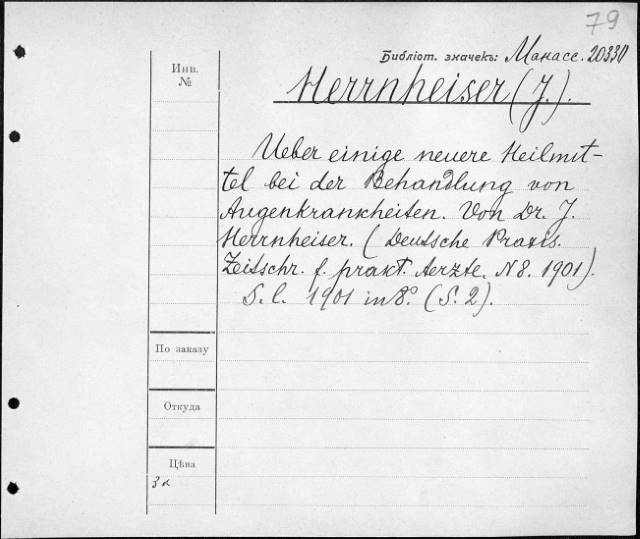 79
Библіот. значекъ: Манасс. 20330
Инв.
№
Herrnheiser (J.).
Ueber einige neuere Heilmit-
tel bei der Behandlung von
Augenkrankheiten. Von Dr. J.
Herrnheiser. (Deutsche Praxis.
Zeitschr. f. prakt. Aerzte. N 8. 1901).
S. l. 1901 in 8°. (S. 2).
По заказу
Откуда
Цѣна
3 к